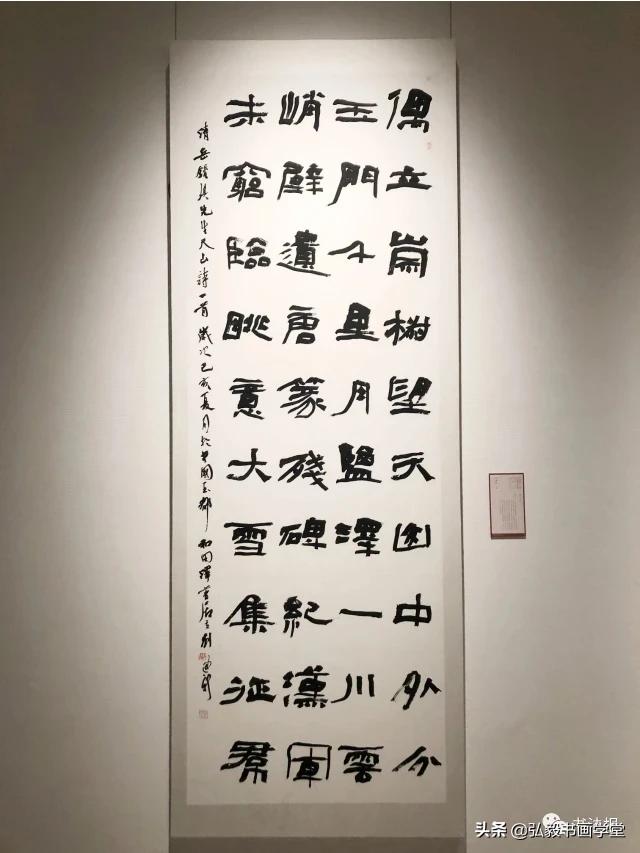 偶立崇椒望天山中外分
玉門千里月鹽澤一川雲
峭壁遺唐篆殘碑紀漢軍
未窮臨眺意大雪集征帬
清岳鍾琪先生天山詩一首 歲次己亥夏月於中國玉都和田
头条 @弘毅书画学堂